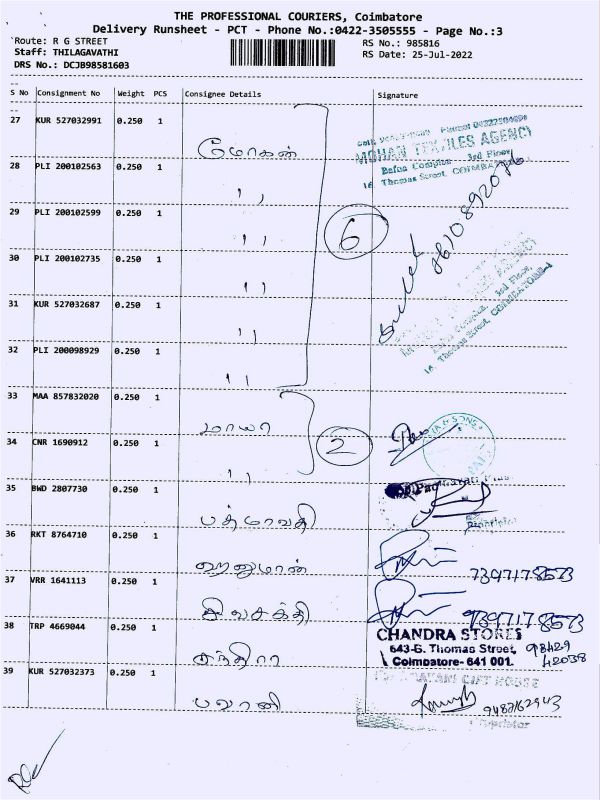 THE PROFESSIONAL COURIERS, Coimbatore
Delivery Runsheet - PCT - Phone No.:0422-3505555 - Page No.:3
Route: R G STREET
RS No.: 985816
Staff: THILAGAVATHI
RS Date: 25-Jul-2022
DRS No.: DCJB98581603
S No Consignment No Weight PCS Consignee Details Signature
27 KUR 527032991 0.250 1
மோகன்
MOHAN TEXTILES AGENCY
Bafna Complex 3rd Floor
16, Thomas Street, COIMBATORE
28 PLI 200102563 0.250 1
,,
29 PLI 200102599 0.250 1
,,
6
30 PLI 200102735 0.250 1
,,
31 KUR 527032687 0.250 1
,,
3rd Floor,
16, Thomas Street, COIMBATORE
32 PLI 200098929 0.250 1
,,
33 MAA 857832020 0.250 1
மாயா
34 CNR 1690912 0.250 1
2
,,
& SONS
35 BWD 2807730 0.250 1
பத்மாவதி
Proprietor
36 RKT 8764710 0.250 1
ஹனுமான்
7397178573
37 VRR 1641113 0.250 1
சிவசக்தி
7397178573
38 TRP 4669044 0.250 1
CHANDRA STORES
643-B. Thomas Street,
Coimbatore- 641 001.
98429
42038
சந்திரா
39 KUR 527032373 0.250 1
GIFT HOUSE
பவானி
9487162943
Proprietor